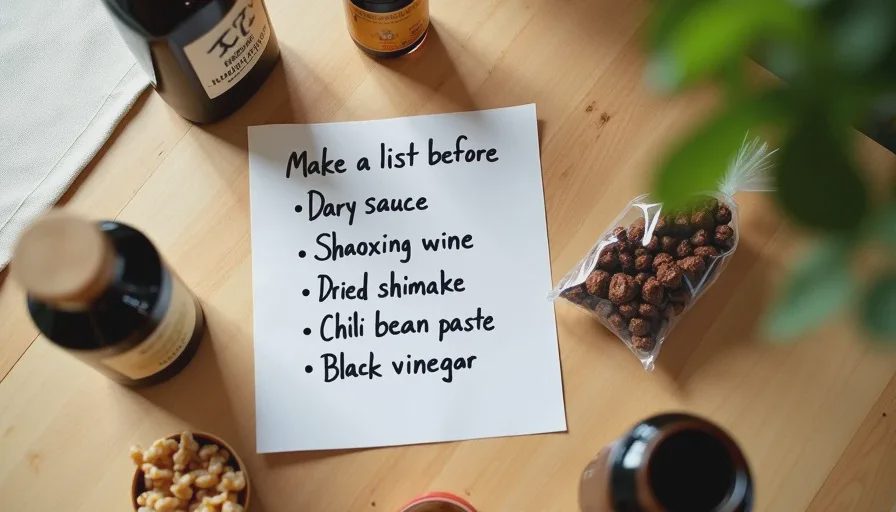 Make a list before
• Dary sauce
• Shaoxing wine
• Dried shimake
• Chili bean paste
• Black vinegar